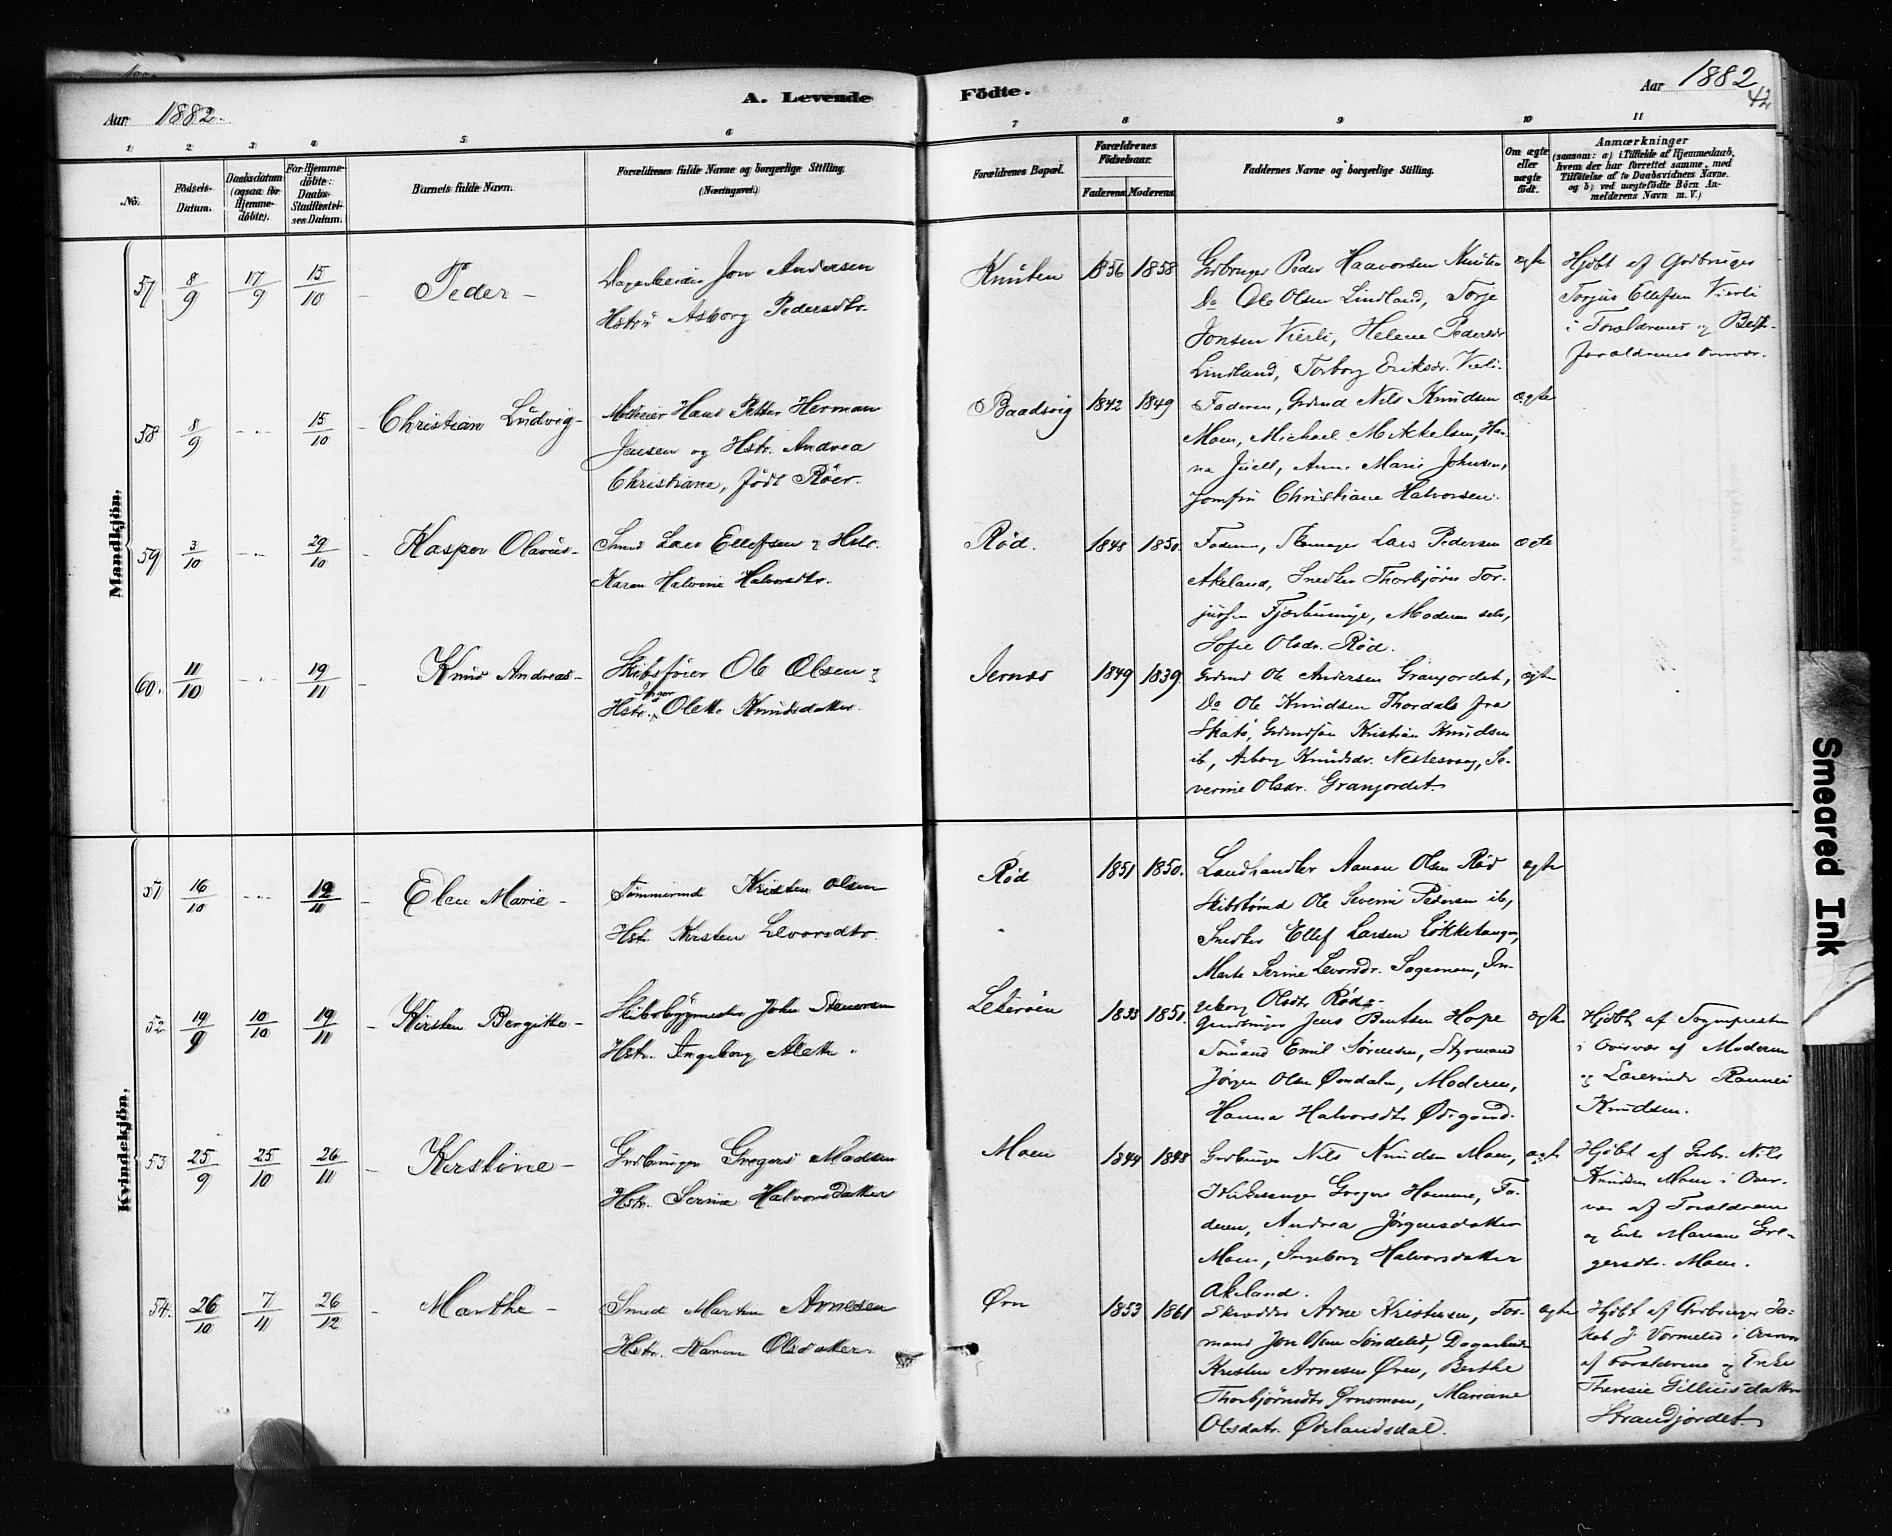 Aar 1882.
A. Levende
Födte.
Aar 1882
42
1. 2. 3. 4. 5. 6.
7 8 9 10 11
No.
Födsels-
Datum.
Daabsdatum
(ogsaa for
Hjemme-
döbte).
For Hjemme-
döbte:
Daabs-
Stadfæstel-
ses Datum.
Barnets fulde Navn.
Forældrenes fulde Navne og borgerlige Stilling.
(Næringsvei.)
Forældrenes Bopæl.
Forældrenes
Födselsaar.
Faderens Moderens
Faddernes Navne og borgerlige Stilling.
Om ægte
eller
uægte
født.
Anmærkninger
(saasom: a) i Tilfælde af Hjemmedaab,
hvem der har forrettet samme, med
Tilföielse af to Daabsvidners Navne,
og b) ved uægtefödte Börn An-
melderens Navn m. V.)
Mandkjön.
57 8/9 17/9 15/10 - Peder -
Dagarbeider Jon Andersen
Hstrü Asborg Pedersdtr.
Knuten 1856 1858
Grdbruger Peder Haavorsen Knuten
Do Ole Olsen Lindland, Torje
Jonsen Vierli, Helene Pedersdr
Lindland, Torborg Eriksdr. Vierli.
ægte
Hjdbt af Grdbruger
Torjus Ellefsen Vierli
i Forældrenes og Best-
forældrenes Overvær.
58 8/9 - 15/10 - Christian Ludvig -
Hans Petter Herman
Jensen og Hstr. Andrea
Christiane, født Röer.
Baadsvig 1842 1849
Faderen, Grdmd Nils Knudsen
Moen, Michael Mikkelsen, Han-
na Juell, Anne Marie Johnsen,
Jomfru Christiane Halvorsen.
ægte
59 3/10 - 29/10 - Kasper Olavus -
Smed Lars Ellefsen & Hstr.
Karen Halvine Halvorsdtr.
Röd. 1848 1850.
Faderen, Lars Pedersen
Akeland, Snedker Thorbjörn Tor-
jusen Moderen selv,
Sofie Olsdr. Röd.
ægte
60. 11/10 - 19/11 Knud Andreas -
Skibsfører Ole Olsen &
Inger
Hstr. Olette Knudsdatter.
Jernæs 1849 1839.
Grdmd Ole Andersen Granjordet,
Do Ole Knudsen Thordale fra
Skatö, Grdmdsön Kristian Knudsen
ib, Asborg Knudsdr. Se-
verine Olsdr. Granjordet.
ægte
Kvindekjön.
51 16/10 - 19/11 - Elen Marie -
Tömmermd Kristen Olsen
Hstr Kirsten Levorsdtr.
Röd 1851 1850.
Landhandler Aanon Olsen Röd
Skibstömd Ole Severin Pedersen ib,
Snedker Ellef Larsen Lökketangen,
Marte Serine Levorsdr. In-
geborg Olsdtr Röd.
ægte
52 19/9 10/10 19/11 - Kirsten Bergitte -
Skibsbygmester John Stenersen
Hstr. Ingeborg Alette.
1833 1851.
Grdbruger Jens Bentsen Hope
Sömand Emil Sörensen, Styrmand
Jörgen Olsen Öondalen, Moderen,
Hanna Halvorsdtr Ödegaard.
ægte
Hjdbt af Sognepresten
i Overvær af Moderen
og
Knudsen.
53 25/9 25/10 26/11 - Kirstine -
Grdbruger Gregers Madsen
Hstr. Serine Halvorsdatter
Moen 1844 1848
Grdbruger Nils Knudsen Moen,
Gregers Hamme, Fa-
deren, Andrea Jörgensdatter
Moen, Ingeborg Halvorsdatter
Akeland.
ægte
Hjdbt af Grbr. Nils
Knudsen Moen i Over-
vær af Forældrene
og Enke Mariane Gre-
gersdtr. Moen.
54. 26/10 7/11 26/12 - Marthe -
Smed Martin Arnesen
Hstr. Karen Olsdatter.
Örn 1853 1861
Skrædder Arne Kristensen, For-
mand Jon Olsen Söndeled, Dagarbeider
Kristen Arnesen Ören, Berthe
Thorbjörnsdtr Örnsmoen, Mariane
Olsdatr. Ödelandsdal.
ægte
Hjdbt af Grdbruger Ja-
kob J. Vormelid i Overvær
af Forældrene og Enke
Theresie Gilliusdatter
Strandjordet.
Smeared Ink